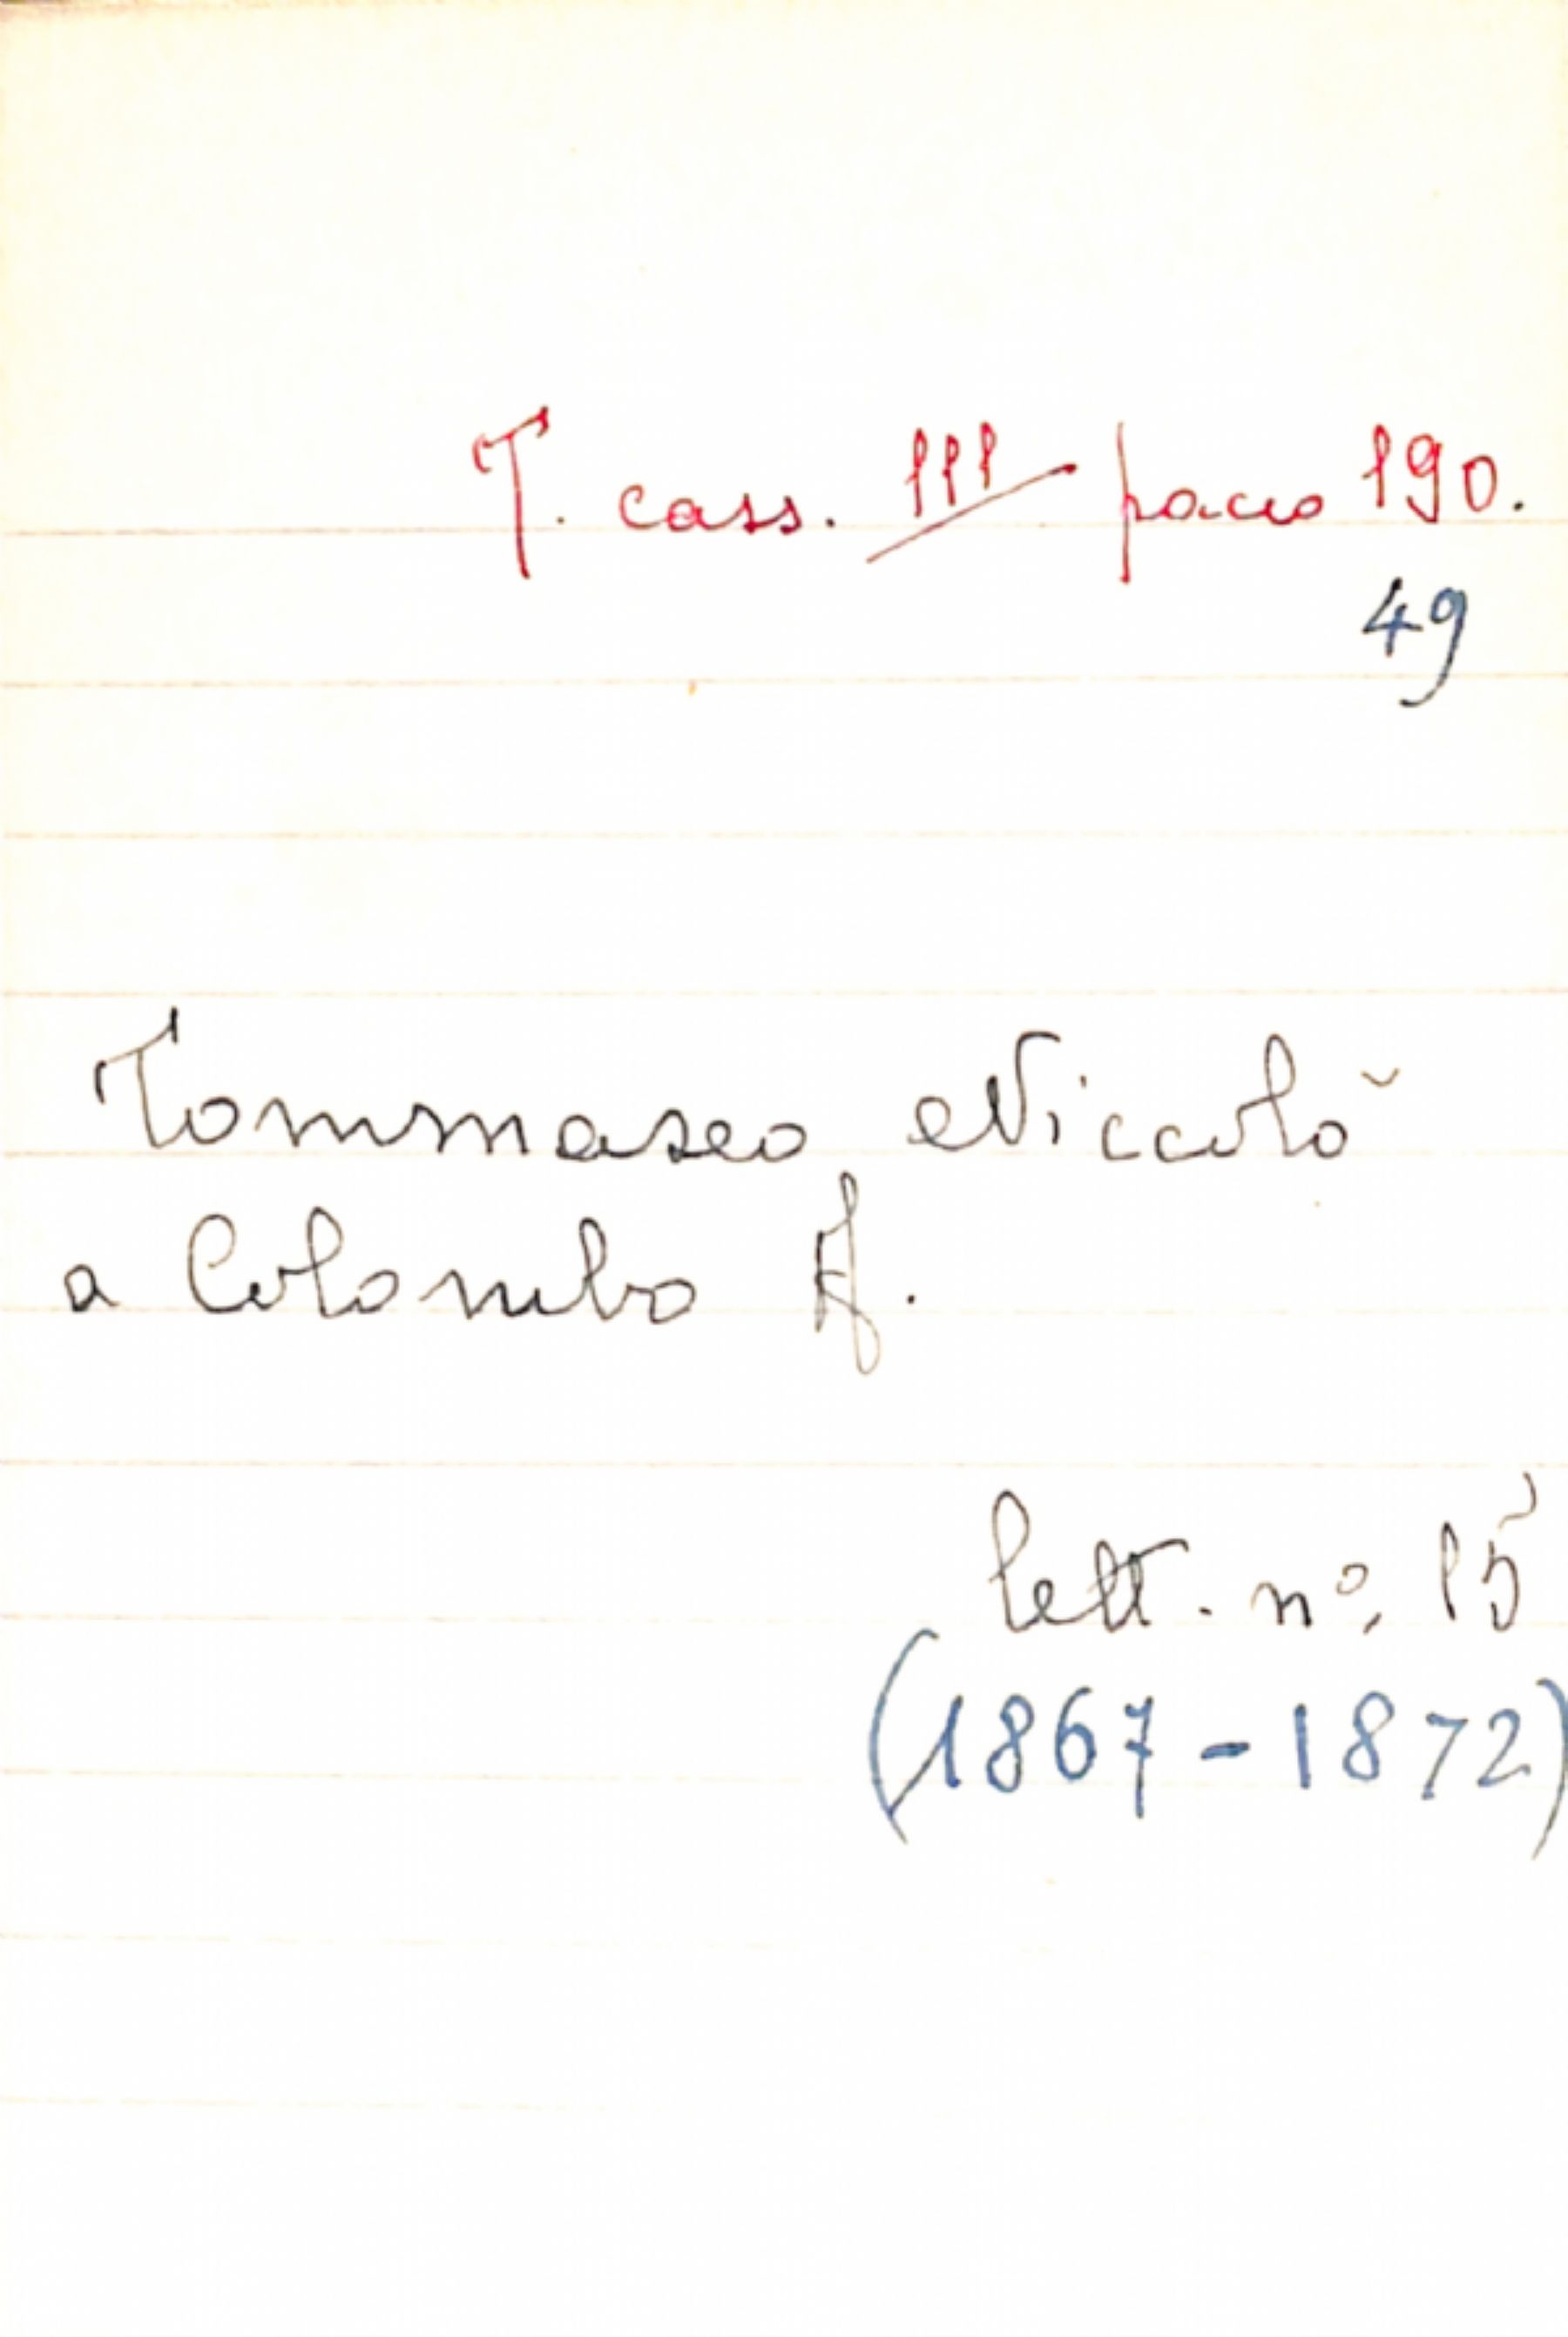 T. cass. 111 pacco 190.
49
Tommaseo, Niccolò
a Colombo A.
lett. n°. 15
(1867-1872)